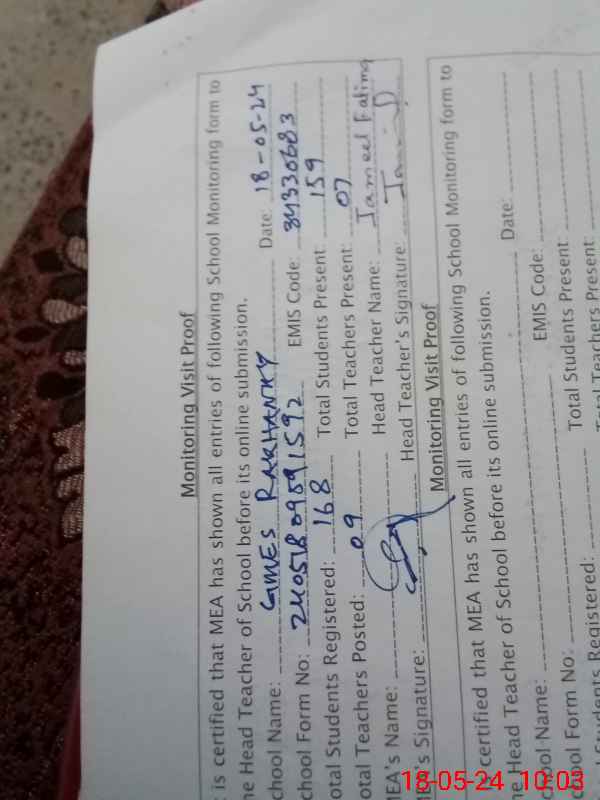 Monitoring Visit Proof
is certified that MEA has shown all entries of following School Monitoring form to
he Head Teacher of School before its online submission.
chool Name: GMES RAKHANKY Date: 18-05-24
chool Form No: 24051809591592 EMIS Code: 34330683
otal Students Registered: 168 Total Students Present: 159
otal Teachers Posted: 09 Total Teachers Present: 07
MEA's Name: Head Teacher Name: Jameel Fatima
's Signature: Head Teacher's Signature:
Monitoring Visit Proof
certified that MEA has shown all entries of following School Monitoring form to
he Head Teacher of School before its online submission.
chool Name: Date:
chool Form No: EMIS Code:
Students Registered: Total Students Present:
Total Teachers Present:
18-05-24 10:03